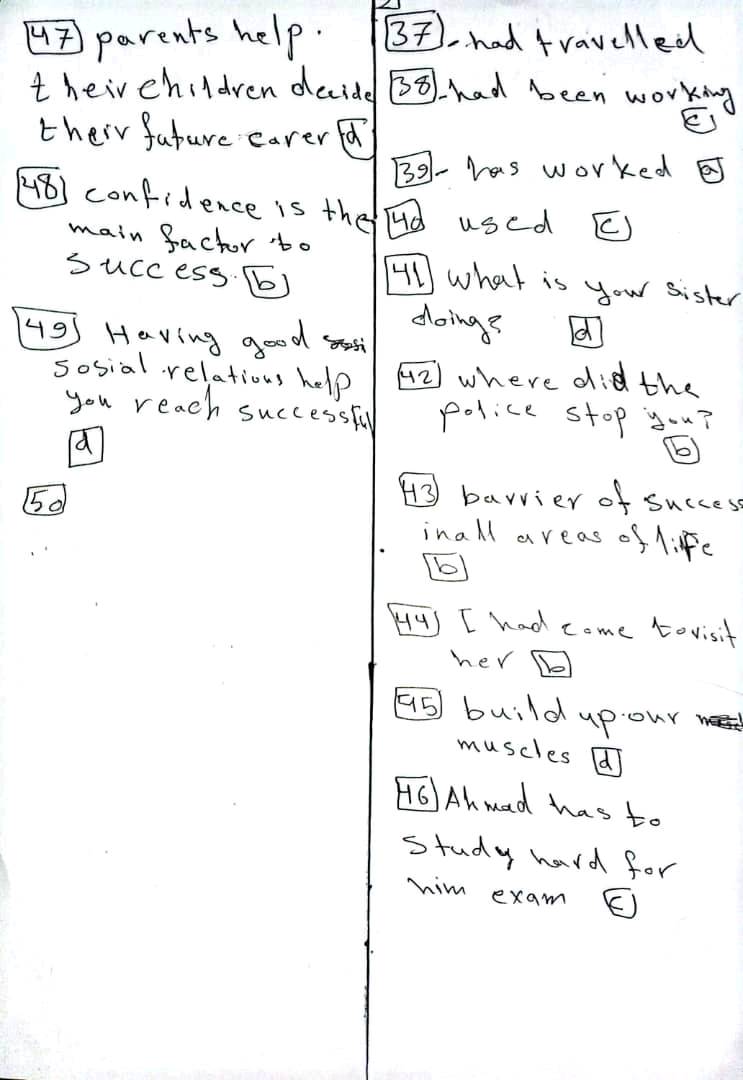 37 - had travelled
38 - had been working
c
39 - has worked a
40 used c
41 what is your sister
doing? d
42 where did the
police stop you?
b
43 barrier of success
in all areas of life
b
44 I had come to visit
her b
45 build up our
muscles d
46 Ahmad has to
study hard for
him exam c
47 parents help.
their children decide
their future carer d
48 confidence is the
main factor to
success. b
49 Having good
sosial relations help
you reach successful
d
50